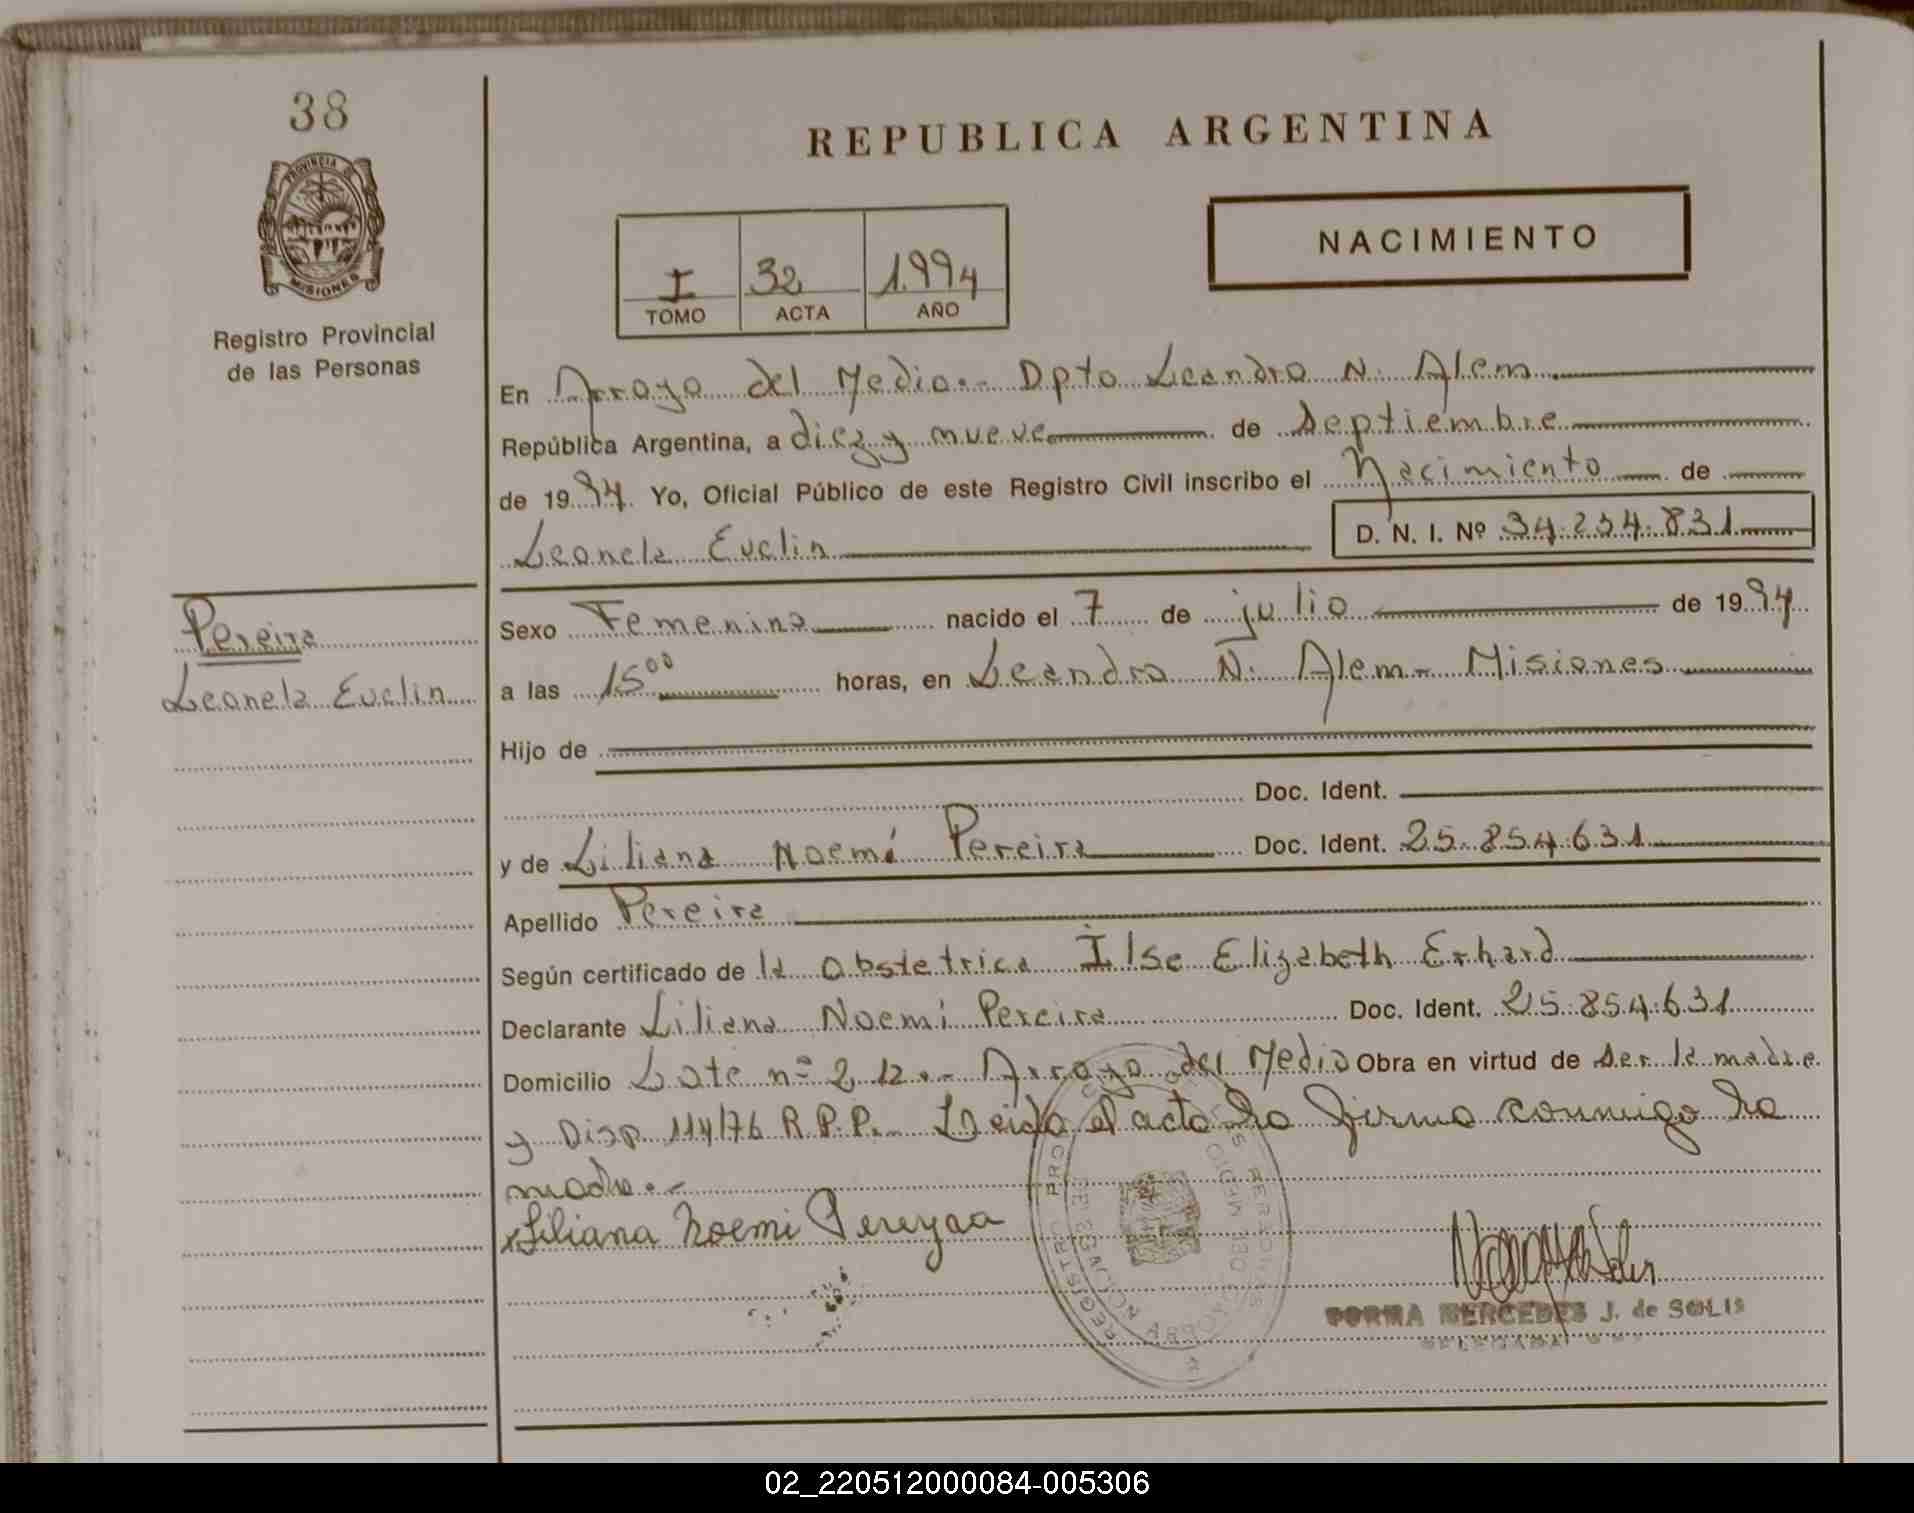 38
PROVINCIA DE
MISIONES
Registro Provincial
de las Personas
REPUBLICA ARGENTINA
NACIMIENTO
I 32 1.994
TOMO ACTA AÑO
En Arroyo del Medio.- Dpto Leandro N. Alem
República Argentina, a diez y nueve de septiembre
de 1994. Yo, Oficial Público de este Registro Civil inscribo el Nacimiento de
Leonela Evelin D. N. I. Nº 34.234.831
Pereira
Leonela Evelin
Sexo Femenino nacido el 7 de julio de 1994
a las 15⁰⁰ horas, en Leandro N. Alem - Misiones
Hijo de
Doc. Ident.
y de Liliana Noemí Pereira Doc. Ident. 25.854.631
Apellido Pereira
Según certificado de la obstetrica Ilse Elizabeth Erhard
Declarante Liliana Noemí Pereira Doc. Ident. 25.854.631
Domicilio Lote nº 212.- Arroyo del Medio Obra en virtud de ser la madre
y Disp 114/76 R.P.P.- Leida el acta la firma conmigo la
madre.-
Liliana Noemi Pereyra
NORMA MERCEDES J. de SOLIS
DELEGADA
02_220512000084-005306